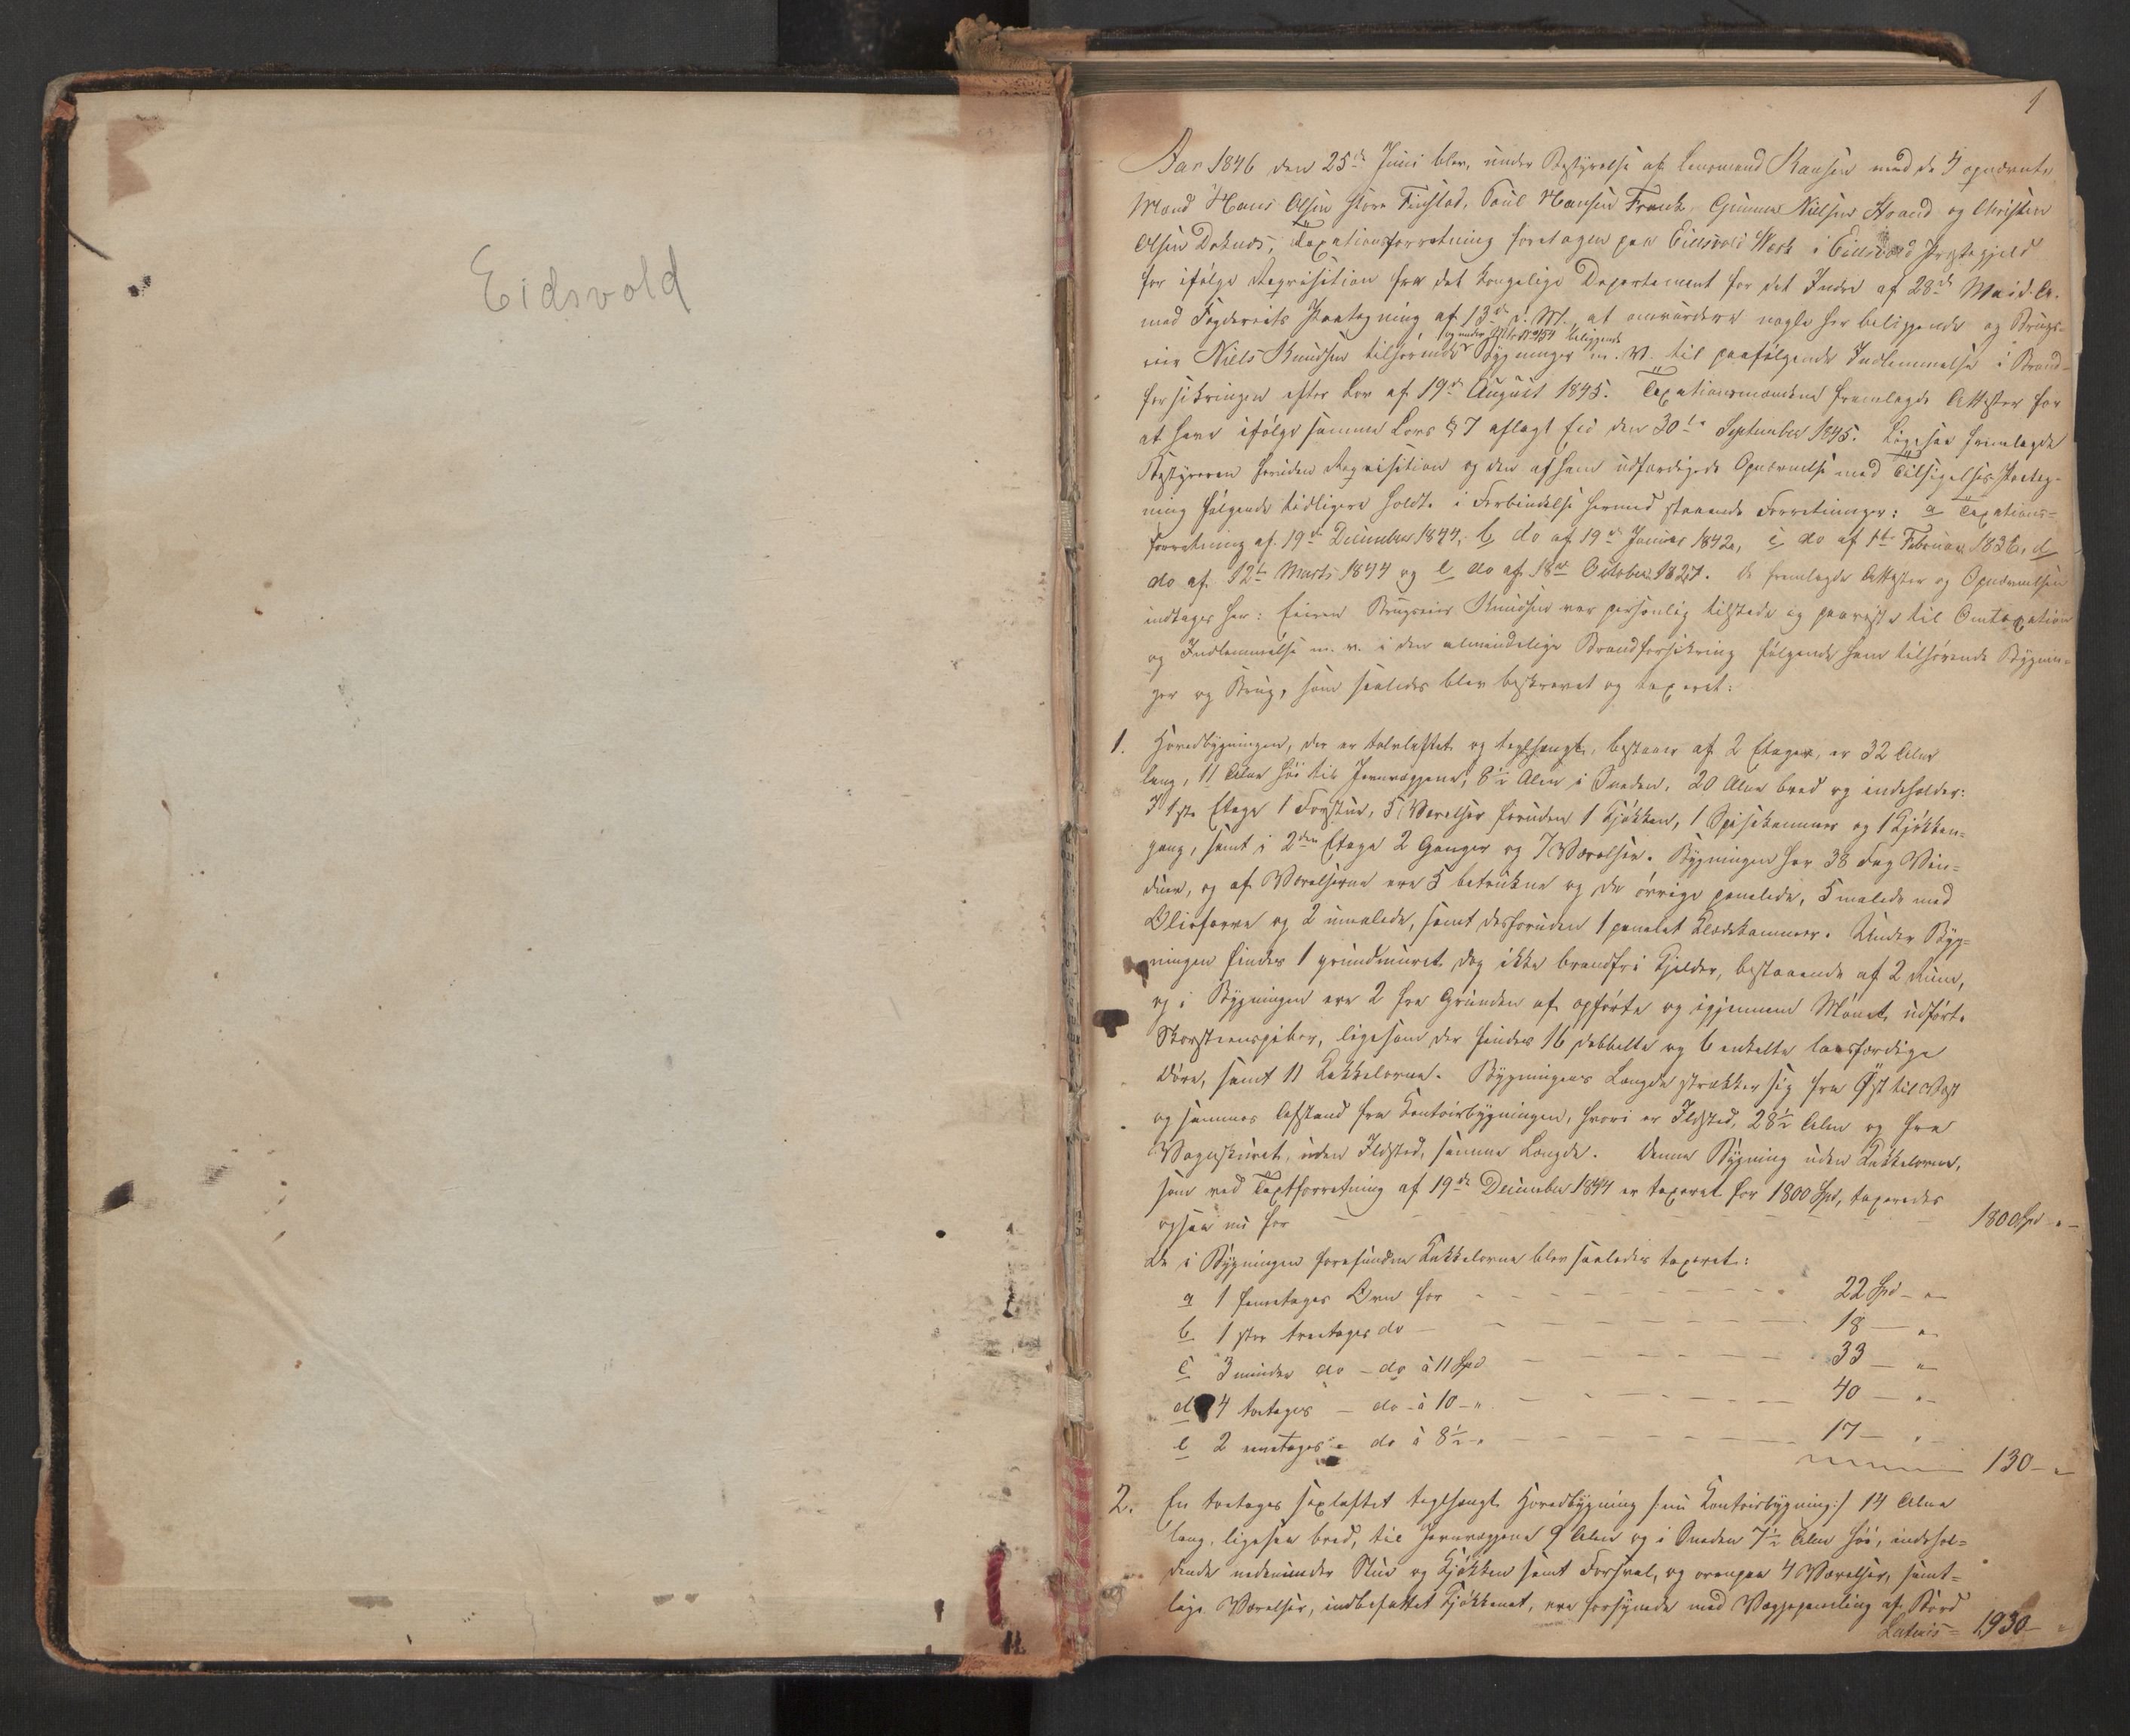 Eidsvold
1
Aar 1846 den 25de Juni blev, under Bestyrelse af Lensmand Hansen med de 4 opnævnte
Mænd Hans Olsen store Finstad, Poul Hansen Gunner Nielsen og Christen
Olsen Doknæs, Taxationsforretning foretagen paa Eidsvold Værk i Eidsvold Præstegjeld
for ifølge Reqvisition fra det kongelige Departement for det Indre af 28de Mai d. A.
med Fogderiets Paategning af 13de d. M. at omvurdere nogle her beliggende og Brugs-
og under beliggende
eier Niels Knudsen tilhørende Bygninger m. V. til paafølgende Indlemmelse i Brand-
forsikringen efter Lov af 19de August 1845. Taxationsmændene fremlagde Attester for
at have ifølge samme Lovs § 7 aflagt Eed den 30te September 1845. Ligesaa fremlagde
Bestyreren foruden Reqvisition og den af ham udfærdigede Opnævnelse med Tilsigelses Paateg-
ning følgende tidligere holdte i Forbindelse hermed staaende Forretninger: a Taxations-
forretning af 19de December 1844, b, do af 19de Januar 1842, c, do af 1ste Februar 1836, d
do af 12te Marts 1844 og e do af 18de October 1827. De fremlagde Attester og Opnævnelsen
indtages her: Eieren Brugseier Knudsen var personlig tilstede og paaviste til Omtaxation
og Indlemmelse m. v. i den almindelige Brandforsikring følgende ham tilhørende Bygnin-
ger og Brug, som saaledes blev beskrevet og taxeret:
1. Hovedbygningen, der er tolvloftet og teglhængt, bestaaer af 2 Etager, er 32 Alen
lang, 11 Alen høi til Jevnvæggene, 8½ Alen i Sneden, 20 Alen bred og indeholder:
I 1ste Etage 1 Forstue, 5 Værelser foruden 1 Kjøkken, 1 Spisekammer og 1 Kjøkken-
gang, samt i 2den Etage 2 Gange og 7 Værelser. Bygningen har 38 Fag Vin-
duer, og af Værelserne ere 5 betrukne og de øvrige panelede, 5 malede med
Oliefarve og 2 umalede, samt desforuden 1 panelet Klædekammer. Under Byg-
ningen findes 1 grundmuret dog ikke brandfri Kjelder, bestaaende af 2 Rum,
og i Bygningen ere 2 fra Grunden af opførte og igjennem Mønet udførte
Skorsteenspiber, ligesom der findes 16 dobbelte og 6 enkelte laasfærdige
Døre, samt 11 Kakkelovne. Bygningens Længde strækker sig fra Øst til Vest
og sammes Afstand fra Kontoirbygningen, hvori er Ildsted, 28½ Alen og fra
Vognskuret, uden Ildsted, samme Længde. Denne Bygning uden Kakkelovne,
som ved Taxtforretning af 19de December 1844 er taxeret for 1800 Spd, taxeredes
ogsaa nu for — 1800 Spd „ –
De i Bygningen forefundne Kakkelovne blev saaledes taxeret:
a 1 femetages Ovn for — 22 Spd – „ –
b 1 stor treetages do — 18 — „ –
c 3 mindre do – do à 11 Spd — 33 — „ –
d 4 toetages – do – à 10 – „ — 40 — „ –
e 2 eenetages „ do à 8½ „ — 17 — „ –
130 – „ –
2. En toetages sexloftet teglhængt Hovedbygning /: nu Kontoirbygning :/ 14 Alen
lang, ligesaa bred, til Jevnvæggene 9 Alen og i Sneden 7½ Alen høi, indehol-
dende nedenunder Stue og Kjøkken samt Forsval, og ovenpaa 4 Værelser, samt-
lige Værelser, indbefattet Kjøkkenet, ere forsynede med Vægpaneling af Bord
Lateris = 1930 – „